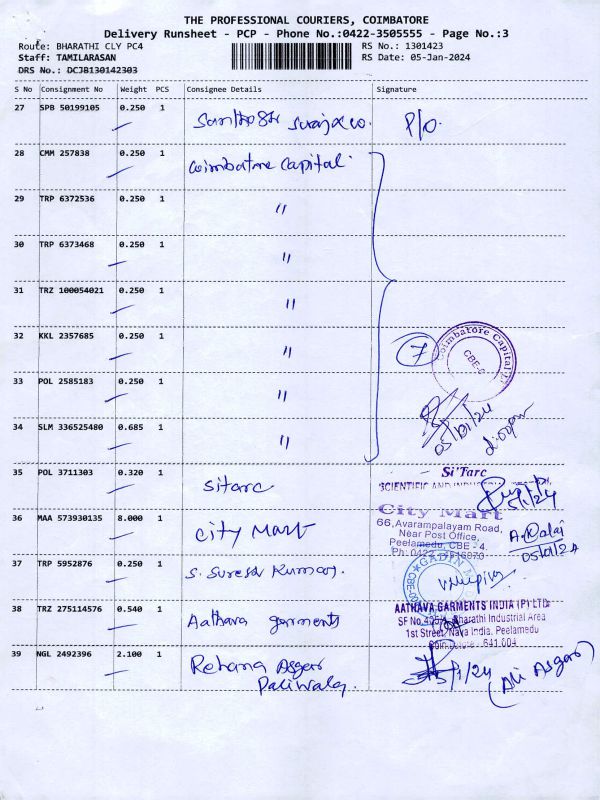 THE PROFESSIONAL COURIERS, COIMBATORE
Delivery Runsheet - PCP - Phone No.:0422-3505555 - Page No.:3
Route: BHARATHI CLY PC4 RS No.: 1301423
Staff: TAMILARASAN RS Date: 05-Jan-2024
DRS No.: DCJB130142303
S No Consignment No Weight PCS Consignee Details Signature
27 SPB 50199105 0.250 1 P/O.
28 CMM 257838 0.250 1 Coimbatore Capital.
29 TRP 6372536 0.250 1 "
30 TRP 6373468 0.250 1 "
31 TRZ 100054021 0.250 1 "
32 KKL 2357685 0.250 1 " 7 Coimbatore Capital
CBE-6
33 POL 2585183 0.250 1 "
34 SLM 336525480 0.685 1 "
05/01/24
35 POL 3711303 0.320 1 Sitarc Si'Tarc
SCIENTIFIC AND
5/1/24
36 MAA 573930135 8.000 1 City Mart City Mart
66, Avarampalayam Road,
Near Post Office,
Peelamedu, CBE - 4.
Ph: 0422
05/01/24
37 TRP 5952876 0.250 1 S. Suresh Kumar.
38 TRZ 275114576 0.540 1 Aathava garments AATHAVA GARMENTS INDIA (P) LTD
SF No. Bharathi Industrial Area
1st Street, Nava India, Peelamedu
Coimbatore 641 004
39 NGL 2492396 2.100 1 Rehana Asgar
Paliwala. 5/1/24 (Ali Asgar)